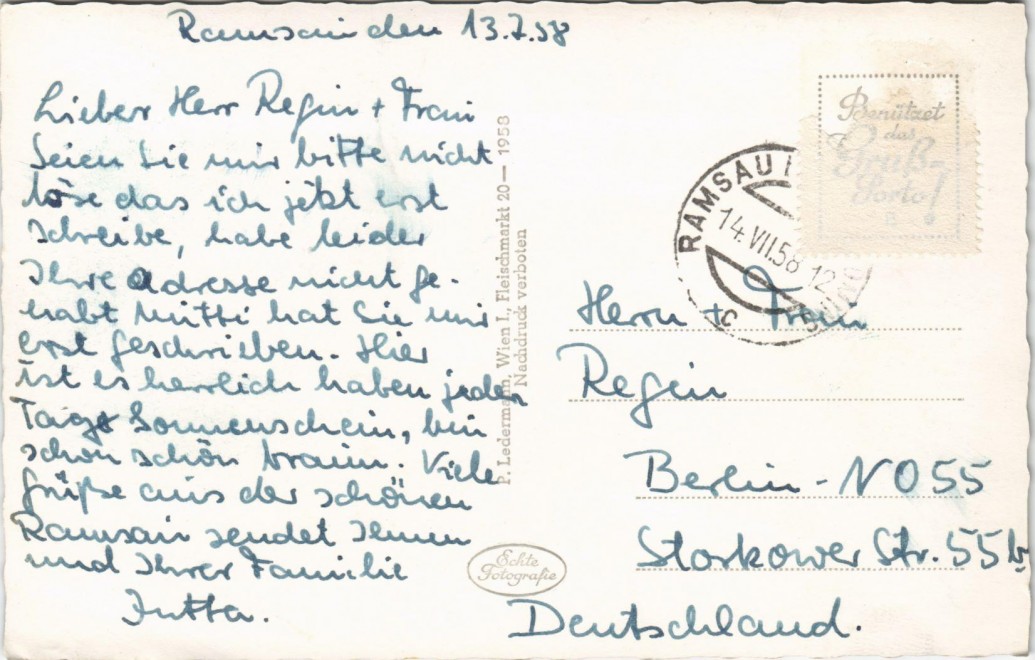 Ramsau den 13.7.58
Lieber Herr Regin + Frau
Seien Sie mir bitte nicht
böse das ich jetzt erst
Schreibe, habe leider
Ihre Adresse nicht ge-
habt Mutti hat Sie mir
erst geschrieben. Hier
ist es herrlich haben jeden
Tag Sonnenschein, bin
schon schön braun. Viele
Grüße aus der schönen
Ramsau sendet Ihnen
und Ihrer Familie
Jutta.
P. Ledermann, Wien I., Fleischmarkt 20 — 1958
Nachdruck verboten
Echte
Fotografie
Benützet
das
Gruß-
Porto!
RAMSAU
14.VII.58 12
C
Herrn + Frau
Regin
Berlin - NO55
Storkower Str. 55b
Deutschland.